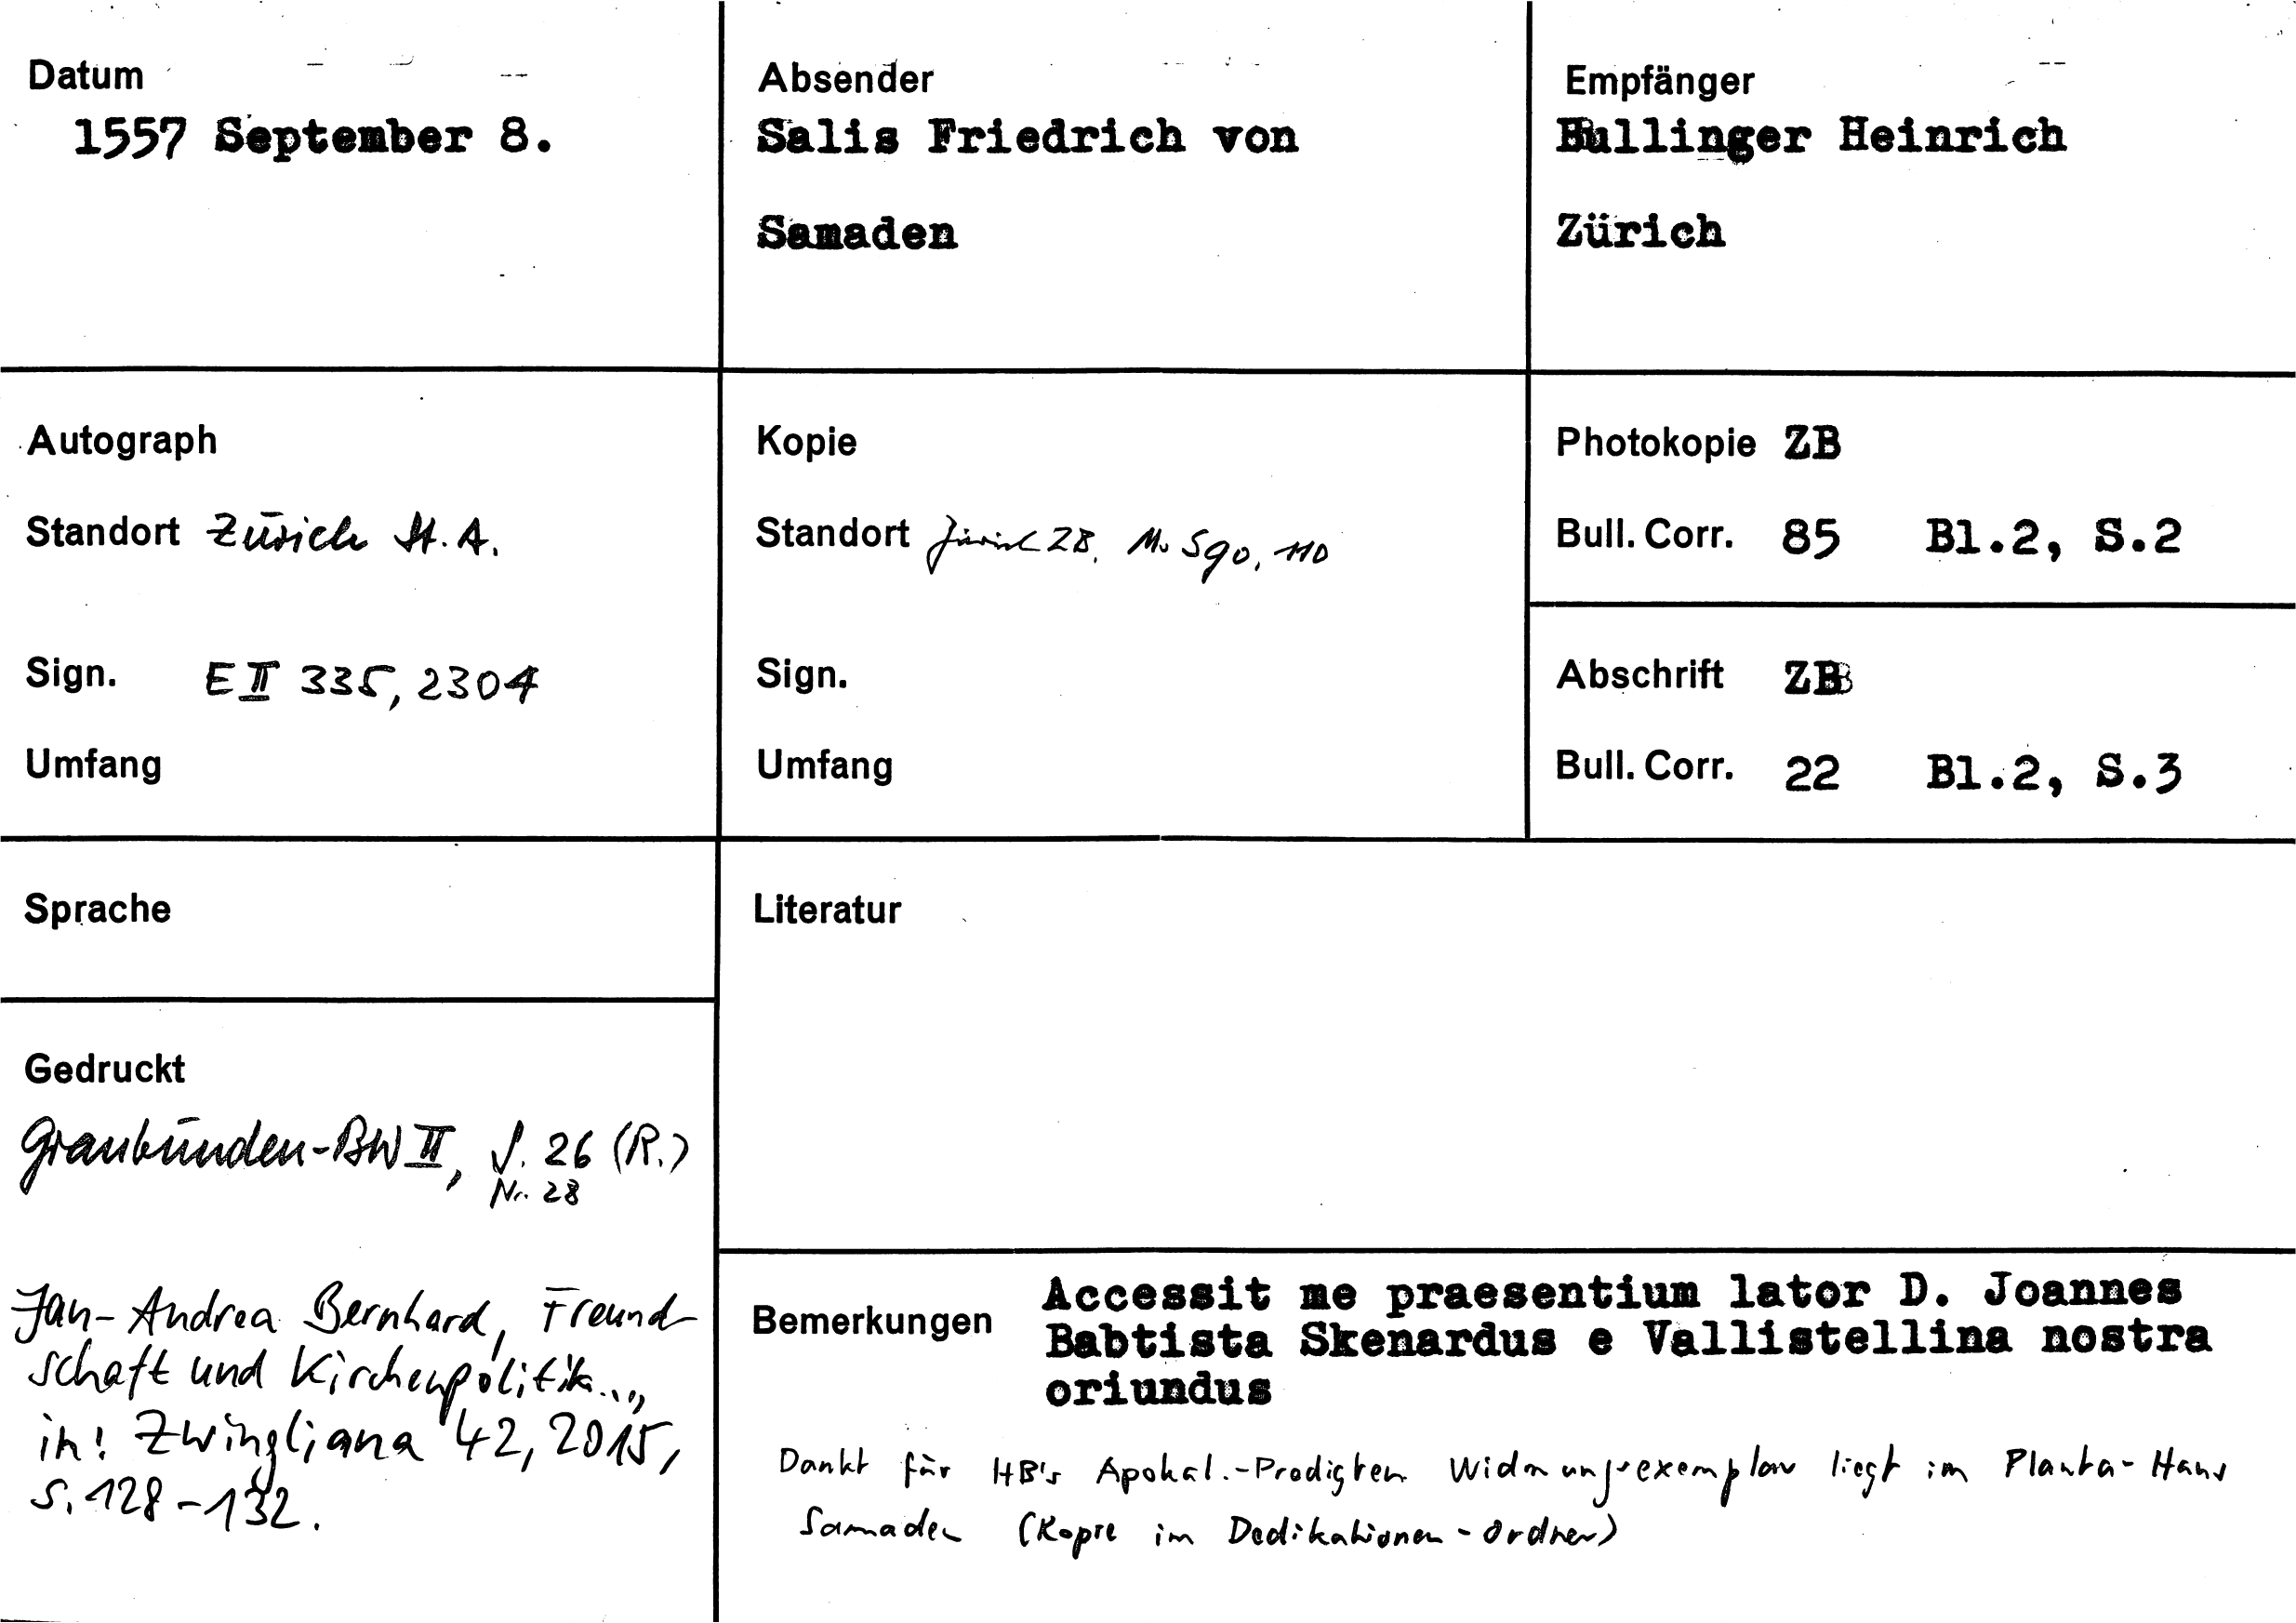 Datum
1557 September 8.
Absender
Salis Friedrich von
Samaden
Empfänger
Bullinger Heinrich
Zürich
Autograph
Standort Zürich St. A.
Sign. E II 335, 2304
Umfang
Kopie
Standort Zürich ZB, Ms S 90, 110
Sign.
Umfang
Photokopie ZB
Bull. Corr. 85 Bl.2, S.2
Abschrift ZB
Bull. Corr. 22 Bl.2, S.3
Sprache
Literatur
Gedruckt
Graubünden-BW II, S. 26 (R.)
Nr. 28
Jan-Andrea Bernhard, Freund-
schaft und Kirchenpolitik...,
in: Zwingliana 42, 2015,
S. 128-132.
Bemerkungen
Accessit me praesentium lator D. Joannes
Babtista Skenardus e Vallistellina nostra
oriundus
Dankt für HB's Apokal.-Predigten Widmungsexemplar liegt im Planta-Haus
Samaden (Kopie im Dedikationen-Ordner)